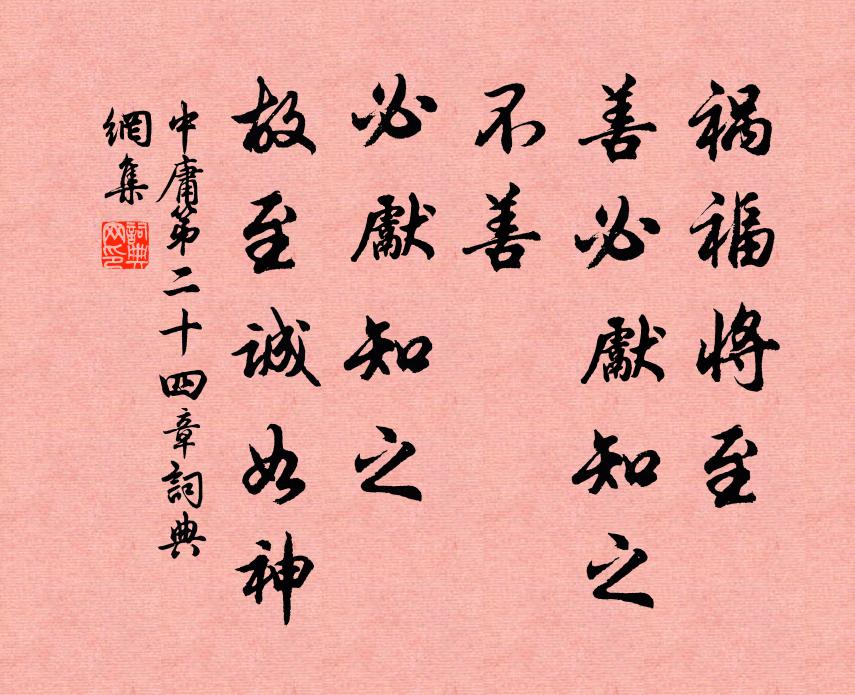 禍福將至
善必獻知之
不善
必獻知之
故至誠如神
中庸第二十四章詞典
網集
詞典網印